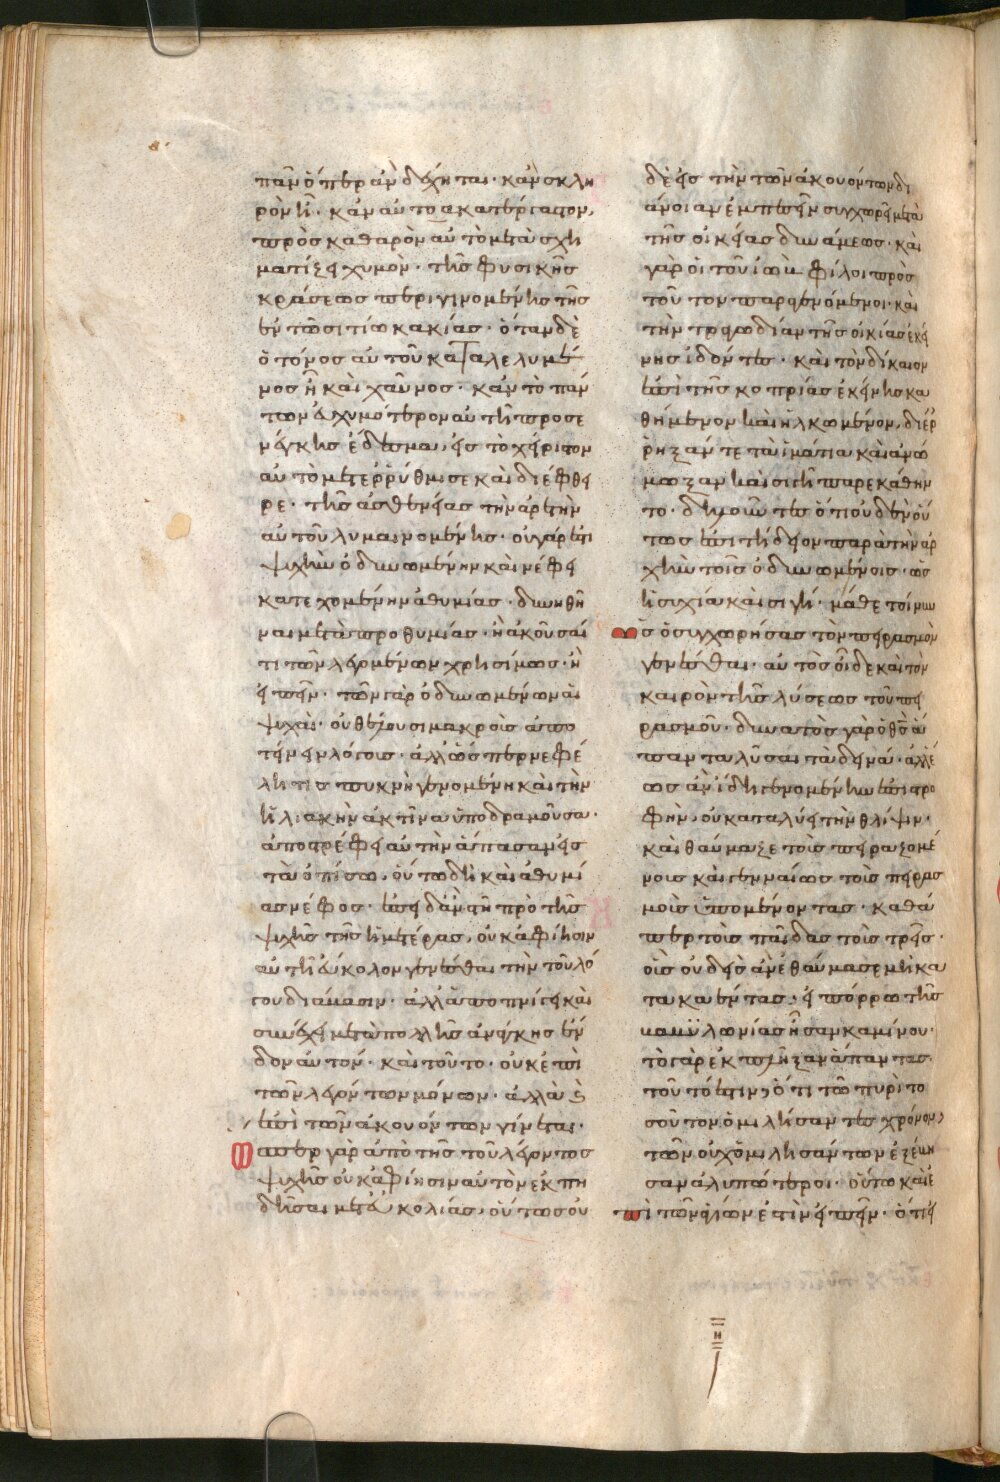 πᾶν ὅπερ ἂν δέχηται· κἂν σκλη
ρὸν ἦ· κἂν αὐτὸ ἀκατέργαστον,
πρὸς καθαρὸν αὐτὸ μετασχη
ματίζει χυμὸν· τῆς φυσικῆς
κράσεως περιγινομένης τῆς
ἐν τῶ σιτίω κακίας· ὅταν δὲ
ὁ τόνος αὐτοῦ καταλελυμέ
νος ἦ καὶ χαῦνος· κἂν τὸ πάν
των εὐχυμότερον αὐτῆ προσε
νέγκης ἔδεσμα, εἰς τὸ χεῖριστον
αὐτὸ μετερρύθμισε καὶ διέφθει
ρε· τῆς ἀσθενείας τὴν ἀρετὴν
αὐτοῦ λυμαινομένης· οὐ γάρ ἐστι
ψυχὴν ὀδυνωμένην καὶ νέφει
κατεχομένην ἀθυμίας· δυνηθῆ
ναι μετὰ προθυμίας· ἢ ἀκοῦσαί
τι τῶν λεγομένων χρησίμως· ἢ
εἰπεῖν· τῶν γὰρ ὀδυνωμένων αἱ
ψυχαὶ· οὐ θέλουσι μακροῖς ἀπο
τείνειν λόγοις· ἀλλ' ὥσπερ νεφέ
λη τις πυκνὴ γενομένη καὶ τὴν
ἡλιακὴν ἀκτῖνα ὑποδραμοῦσα·
ἀποστρέφει αὐτὴν ἅπασαν εἰς
τὰ ὀπίσω, οὕτω δὴ καὶ ἀθυμί
ας νέφος· ἐπειδὰν στῆ πρὸ τῆς
ψυχῆς τῆς ἡμετέρας, οὐκ ἀφίησιν
αὐτῆ εὔκολον γενέσθαι τὴν τοῦ λό
γου διάβασιν· ἀλλ' ἀποπνίγει καὶ
συνέχει μετὰ πολλῆς ἀνάγκης ἔν
δον αὐτόν· καὶ τοῦτο· οὐκ ἐπὶ
τῶν λεγόντων μόνων· ἀλλὰ καὶ
ἐπὶ τῶν ἀκουόντων γίνεται·
ὥσπερ γὰρ ἀπὸ τῆς τοῦ λέγοντος
ψυχῆς οὐκ ἀφίησιν αὐτὸν ἐκπη
δῆσαι μετ' εὐκολίας, οὕτως οὐ
δὲ εἰς τὴν τῶν ἀκουόντων δι
άνοιαν ἐμπεσεῖν συγχωρεῖ μετὰ
τῆς οἰκείας δυνάμεως· καὶ
γὰρ οἱ τοῦ ἰὼβ φίλοι πρὸς
τοῦτον παραγενόμενοι· καὶ
τὴν τραγωδίαν τῆς οἰκίας ἐκεί
νης ἰδόντες· καὶ τὸν δίκαιον
ἐπὶ τῆς κοπρίας ἐκείνης κα
θήμενον καὶ ἡλκωμένον, διέρ
ρηξάν τε τὰ ἱμάτια καὶ ἀνώ
μωξαν καὶ σιγῆ παρεκάθην
το· δηλοῦντες ὅτι οὐδὲν οὕ
τως ἐπιτήδειον παρὰ τὴν ἀρ
χὴν τοῖς ὀδυνωμένοις· ὡς
ἡσυχία καὶ σιγή· μάθε τοίνυν
ὡς ὁ συγχωρήσας τὸν πειρασμὸν
γενέσθαι· αὐτὸς οἶδε καὶ τὸν
καιρὸν τῆς λύσεως τοῦ πει
ρασμοῦ· δυνατὸς γὰρ ὁ θς ἅ
παντα λῦσαι τὰ δεινά· ἀλλ' ἕ
ως ἂν ἴδη γενομένην ἐπιστρο
φὴν, οὐ καταλύει τὴν θλίψιν·
καὶ θαύμαζε τοῖς πειραζομέ
νοις καὶ γενναίως τοῖς πειρασ
μοῖς ὑπομένοντας· καθά
περ τοῖς παῖδας τοῖς τρεῖς·
οἷς οὐδεὶς ἂν ἐθαύμασε μὴ κα
τακαέντας, εἰ πόρρω τῆς
βαβυλωνίας ἦσαν καμίνου·
τὸ γὰρ ἐκπλῆξαν ἅπαντας
τοῦτό ἐστιν, ὅτι τῶ πυρὶ το
σοῦτον ὁμιλήσαντες χρόνον,
τῶν οὐχ ὁμιλησάντων ἐξέβη
σαν ἀλυπότεροι· οὕτω καὶ ἐ
πὶ τῶν ἁγίων ἔστιν εἰπεῖν· ὅτι εἰ
η